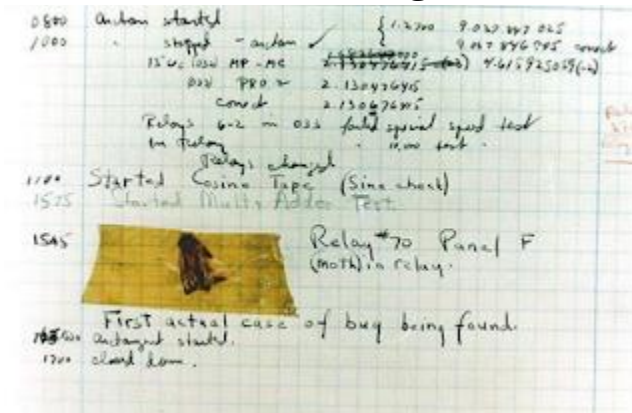 0800 antan started { 1.2700 9.037 847 025
1000 " stopped - antan ✓ 9.037 846 995 correct
13"uc (032) MP-MC 2.130476415 (-3) 4.615925059(-2)
033 PRO 2 2.130476415
correct 2.130676415
Relays 6-2 in 033 failed special speed test
in relay " 10,000 test.
Relays changed
1100 Started Cosine Tape (Sine check)
1525 Started Mult+Adder Test.
1545 Relay #70 Panel F
(moth) in relay.
First actual case of bug being found.
antangent started.
1700 closed down.